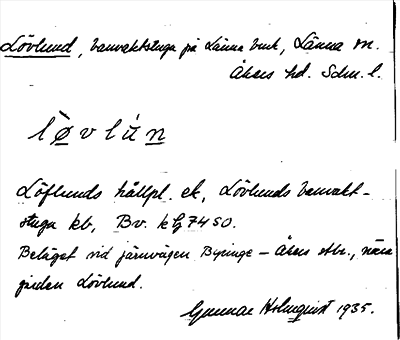 Lövlund, banvaktstuga på Länna bruk, Länna sn.
Åkers hd. Södm. l.
lø̀vlún
Löflunds hållpl. ek, Lövlunds banvakt-
stuga kb, Bv. kb 7450.
Beläget vid järnvägen Byringe – Åkers stn., nära
gården Lövlund.
Gunnar Holmquist 1935.